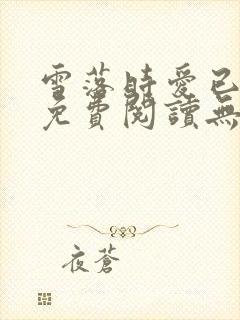 雪落時愛已
免費閱讀無
夜蒼